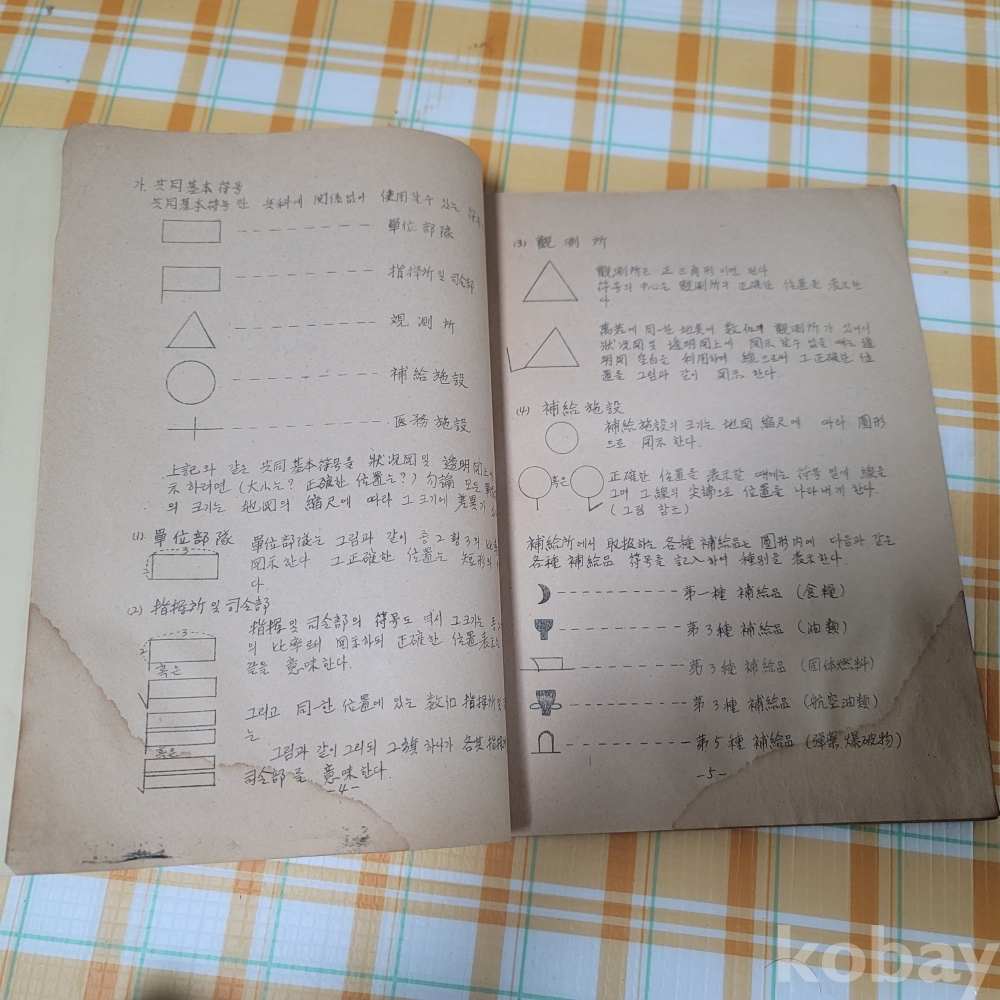 가. 共同基本符号
共同基本符号란 兵科에 関係없이 使用할수 있는
單位部隊
指揮所 및 司令部
観測所
補給施設
医務施設
上記와 같은 共同基本符号를 狀況図 및 透明図上에
示하려면 (大小는? 正確한 位置는?) 勿論 모든
의 크기는 地図의 縮尺에 따라 그 크기에 差異가
(1) 單位部隊
3
2
單位部隊는 그림과 같이 종2 횡3의 比率
図示한다 그 正確한 位置는 矩形의
다.
(2) 指揮所 및 司令部
3
2
혹은
指揮 및 司令部의 符号도 역시 그 크기는
의 比率로써 図示하되 正確한 位置表示는
끝을 意味한다.
그리고 同一한 位置에 있는 数個 指揮所 및
는
혹은
그림과 같이 그리되 그 旗 하나가 各其 指揮
司令部를 意味한다.
-4-
(3) 觀測所
観測所는 正三角形이면 된다
符号의 中心은 觀測所의 正確한 位置를 表示한
다.
萬若에 同一한 地点에 数個의 觀測所가 있어서
狀況図 및 透明図上에 図示할수 없을 때는 透
明図 空白을 利用하여 線으로써 그 正確한 位
置를 그림과 같이 図示한다.
(4) 補給施設
補給施設의 크기는 地図 縮尺에 따라 圓形
으로 図示한다.
혹은
正確한 位置를 表示할 때에는 符号 밑에 線을
그어 그 線의 尖端으로 位置를 나타내게 한다.
(그림 참조)
補給所에서 取扱하는 各種 補給品은 圓形内에 다음과 같은
各種 補給品 符号를 記入하여 種別을 表示한다.
第一種 補給品 (食糧)
第3種 補給品 (油類)
第3種 補給品 (固体燃料)
第3種 補給品 (航空油類)
第5種 補給品 (弾薬爆破物)
-5-
kobay